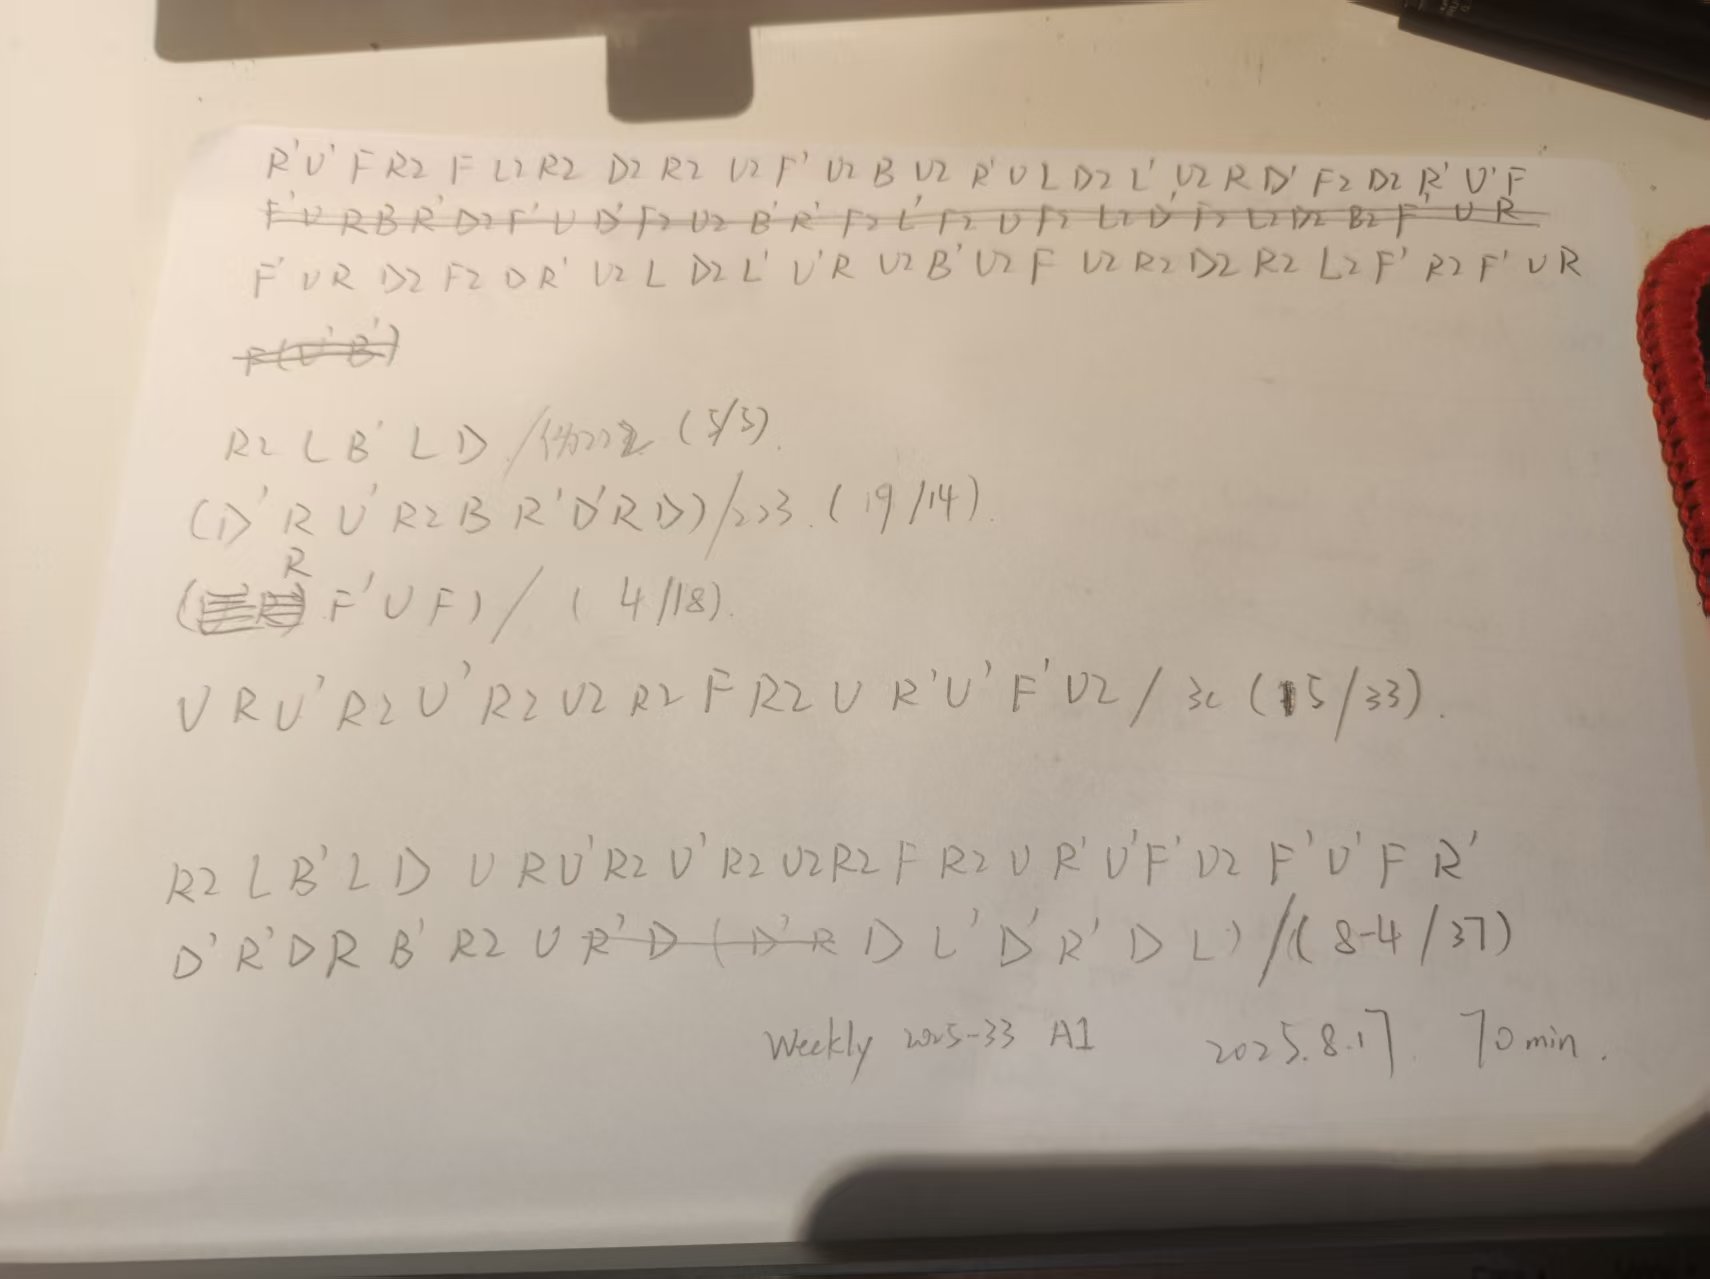 R' U' F R2 F L2 R2 D2 R2 U2 F' U2 B U2 R' U L D2 L' U2 R D' F2 D2 R' U' F
F' U R B R' D2 F' U D' F2 U2 B' R' F2 L' F2 U F2 L2 D' F2 L2 D2 B2 F' U R
F' U R D2 F2 D R' U2 L D2 L' U' R U2 B' U2 F U2 R2 D2 R2 L2 F' R2 F' U R
F (U' B')
R2 L B' L D / 222 (5/5).
(D' R U' R2 B R' D' R D) / 223. (19/14).
R
( F' U F) / (4/18).
U R U' R2 U' R2 U2 R2 F R2 U R' U' F' U2 / 3c (15/33).
R2 L B' L D U R U' R2 U' R2 U2 R2 F R2 U R' U' F' U2 F' U' F R'
D' R' D R B' R2 U R' D (D' R D L' D' R' D L) / (8-4/37)
Weekly 2025-33 A1 2025.8.17. 70 min.